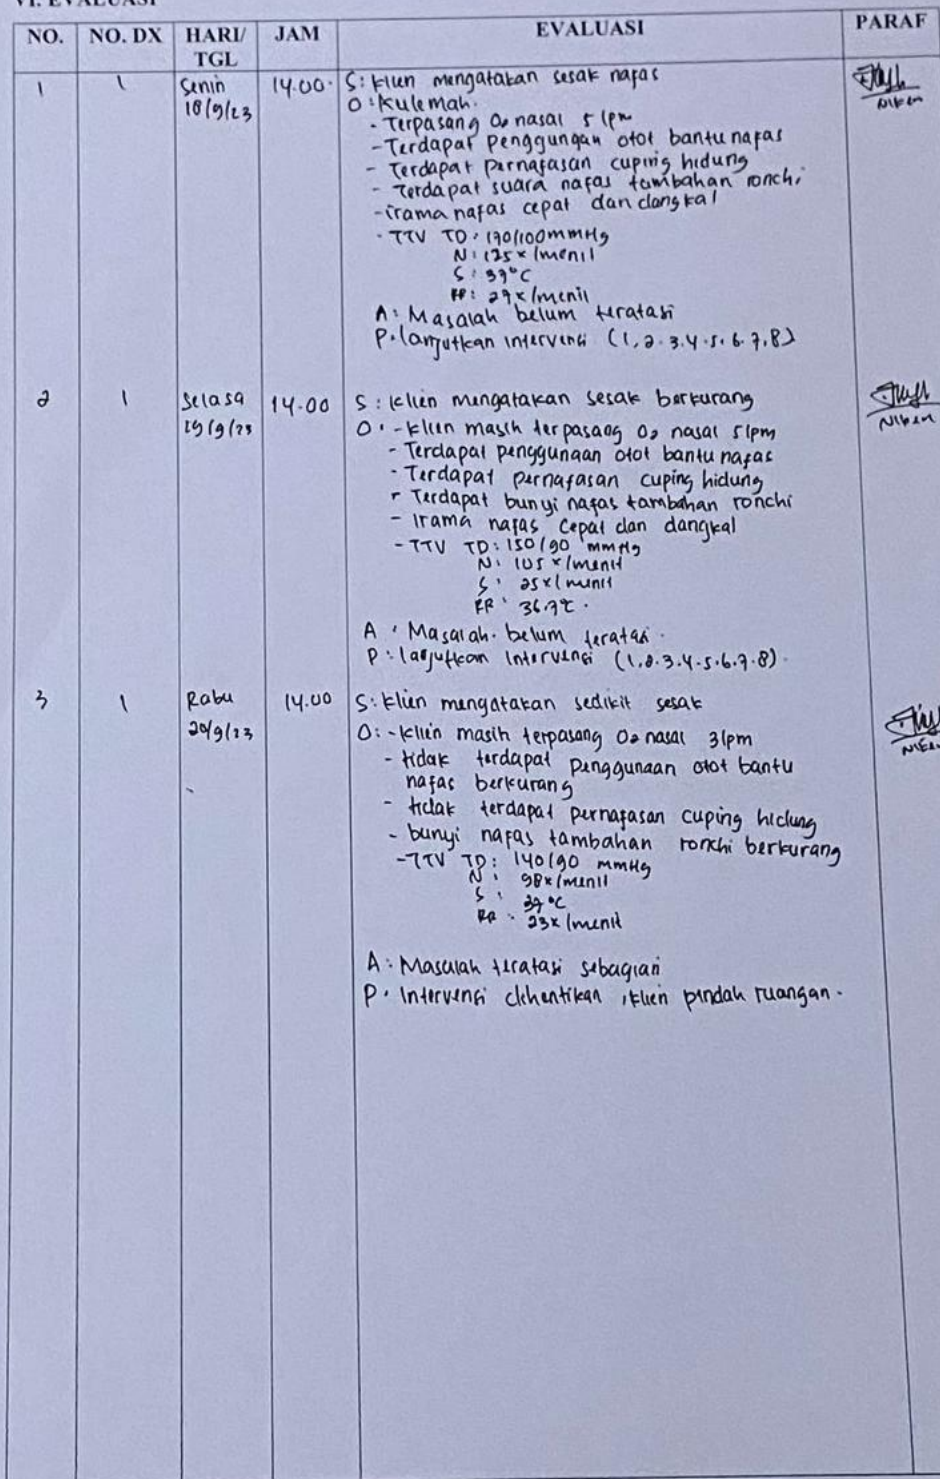 VI. EVALUASI
NO. NO. DX HARI/ TGL JAM EVALUASI PARAF
1 1 Senin 18/9/23 14.00. S: klien mengatakan sesak nafas
O: Ku lemah.
- Terpasang O2 nasal 5 lpm
- Terdapat Penggungan otot bantu nafas
- Terdapat pernafasan cuping hidung
- Terdapat suara nafas tambahan ronchi
- irama nafas cepat dan dangkal
- TTV TD: 170/100 mmHg
N: 125x/menit
S: 37°C
RR: 27x/menit
A: Masalah belum teratasi
P: lanjutkan intervensi (1, 2. 3. 4. 5. 6. 7, 8)
2 1 Selasa 19/9/23 14.00 S: klien mengatakan sesak berkurang
O: - klien masih terpasang O2 nasal 5 lpm
- Terdapat penggunaan otot bantu nafas
- Terdapat pernafasan cuping hidung
- Terdapat bunyi nafas tambahan ronchi
- Irama nafas cepat dan dangkal
- TTV TD: 150/90 mmHg
N: 105 x/menit
S: 25x/menit
RR: 36.7°C.
A: Masalah belum teratasi.
P: lanjutkan Intervensi (1. 2. 3. 4. 5. 6. 7. 8).
3 1 Rabu 20/9/23 14.00 S: klien mengatakan sedikit sesak
O: - klien masih terpasang O2 nasal 3 lpm
- tidak terdapat penggunaan otot bantu
nafas berkurang
- tidak terdapat pernafasan cuping hidung
- bunyi nafas tambahan ronchi berkurang
- TTV TD: 140/90 mmHg
N: 98x/menit
S: 37°C
RR: 23x/menit
A: Masalah teratasi sebagian
P: Intervensi dihentikan, klien pindah ruangan.
Niken
Niken
Niken